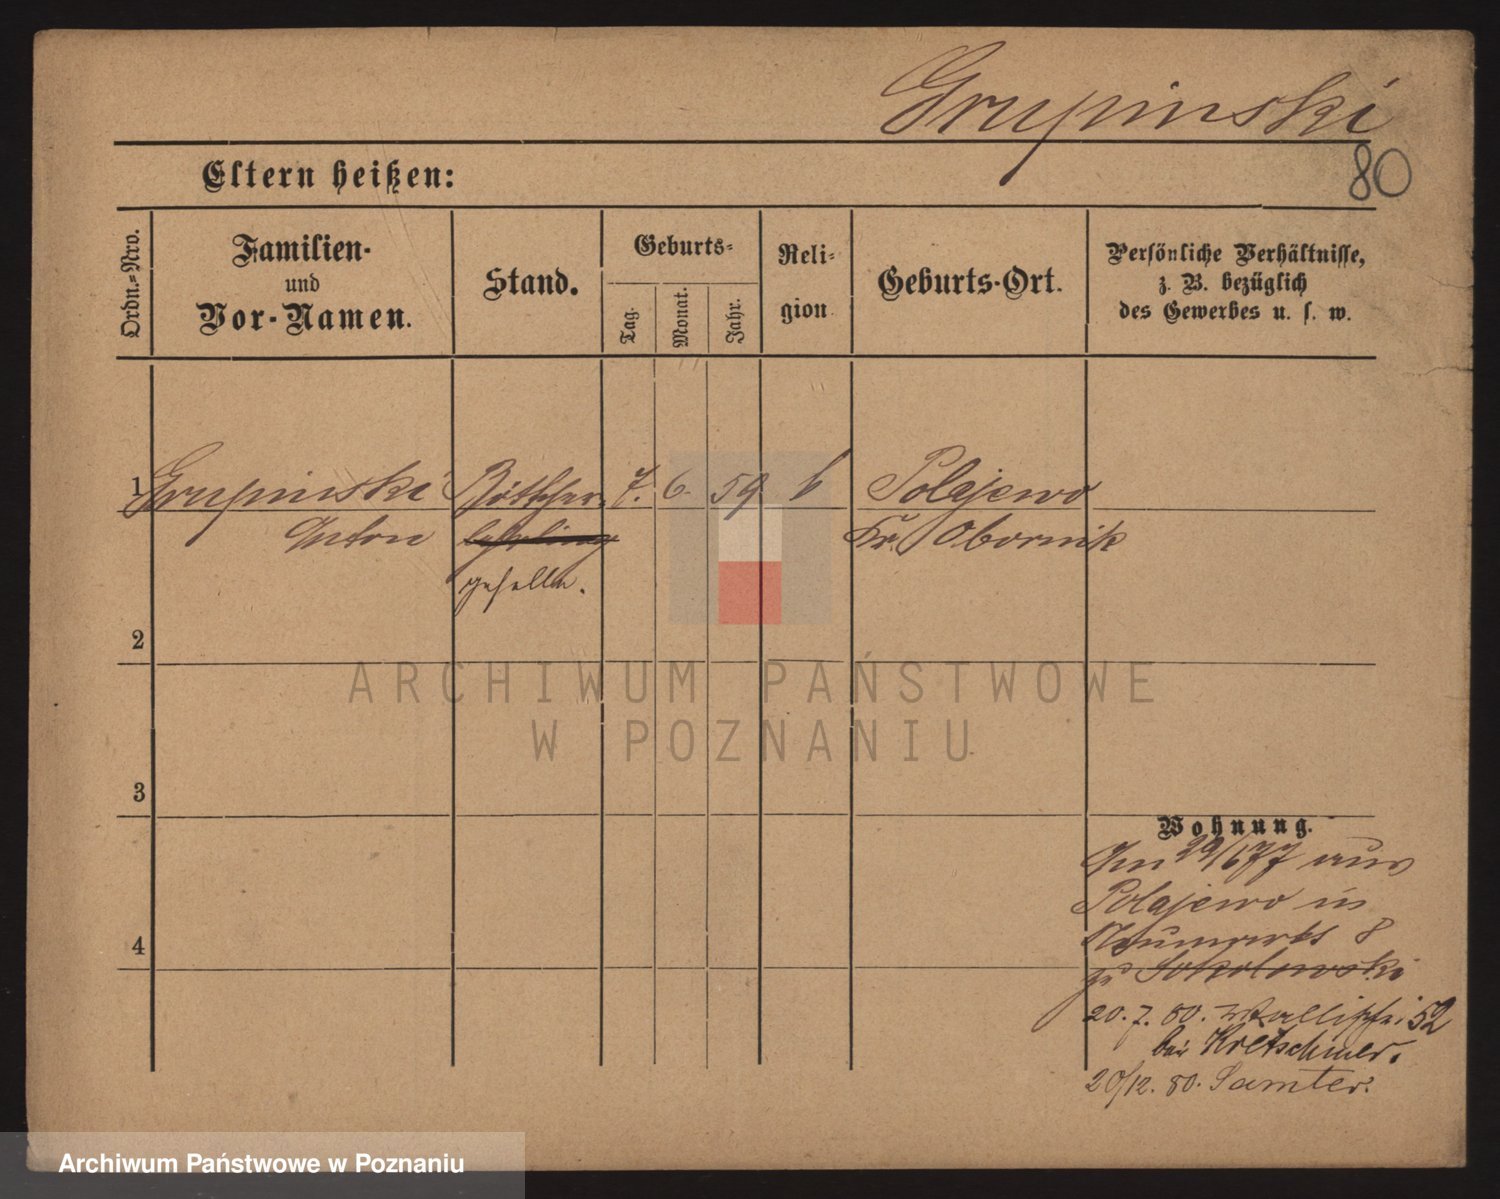 Grupinski
80
Eltern heißen:
Ordn.-Nro.
Familien-
und
Vor-Namen.
Stand.
Geburts-
Tag.
Monat.
Jahr.
Reli-
gion
Geburts-Ort.
Persönliche Verhältnisse,
z. B. bezüglich
des Gewerbes u. s. w.
1 Grupinski Böttcher- 7. 6. 59 k Polajewo
Anton lehrling Kr. Obornik
geselle.
2
3
4
Wohnung.
Am 29/6 77 aus
Polajewo in
Neumarkt 8
zu Sokolowski
20. 7. 80. Wallischei 52
bei Kretschmer.
20/12. 80. Samter.
ARCHIWUM PAŃSTWOWE
W POZNANIU
Archiwum Państwowe w Poznaniu